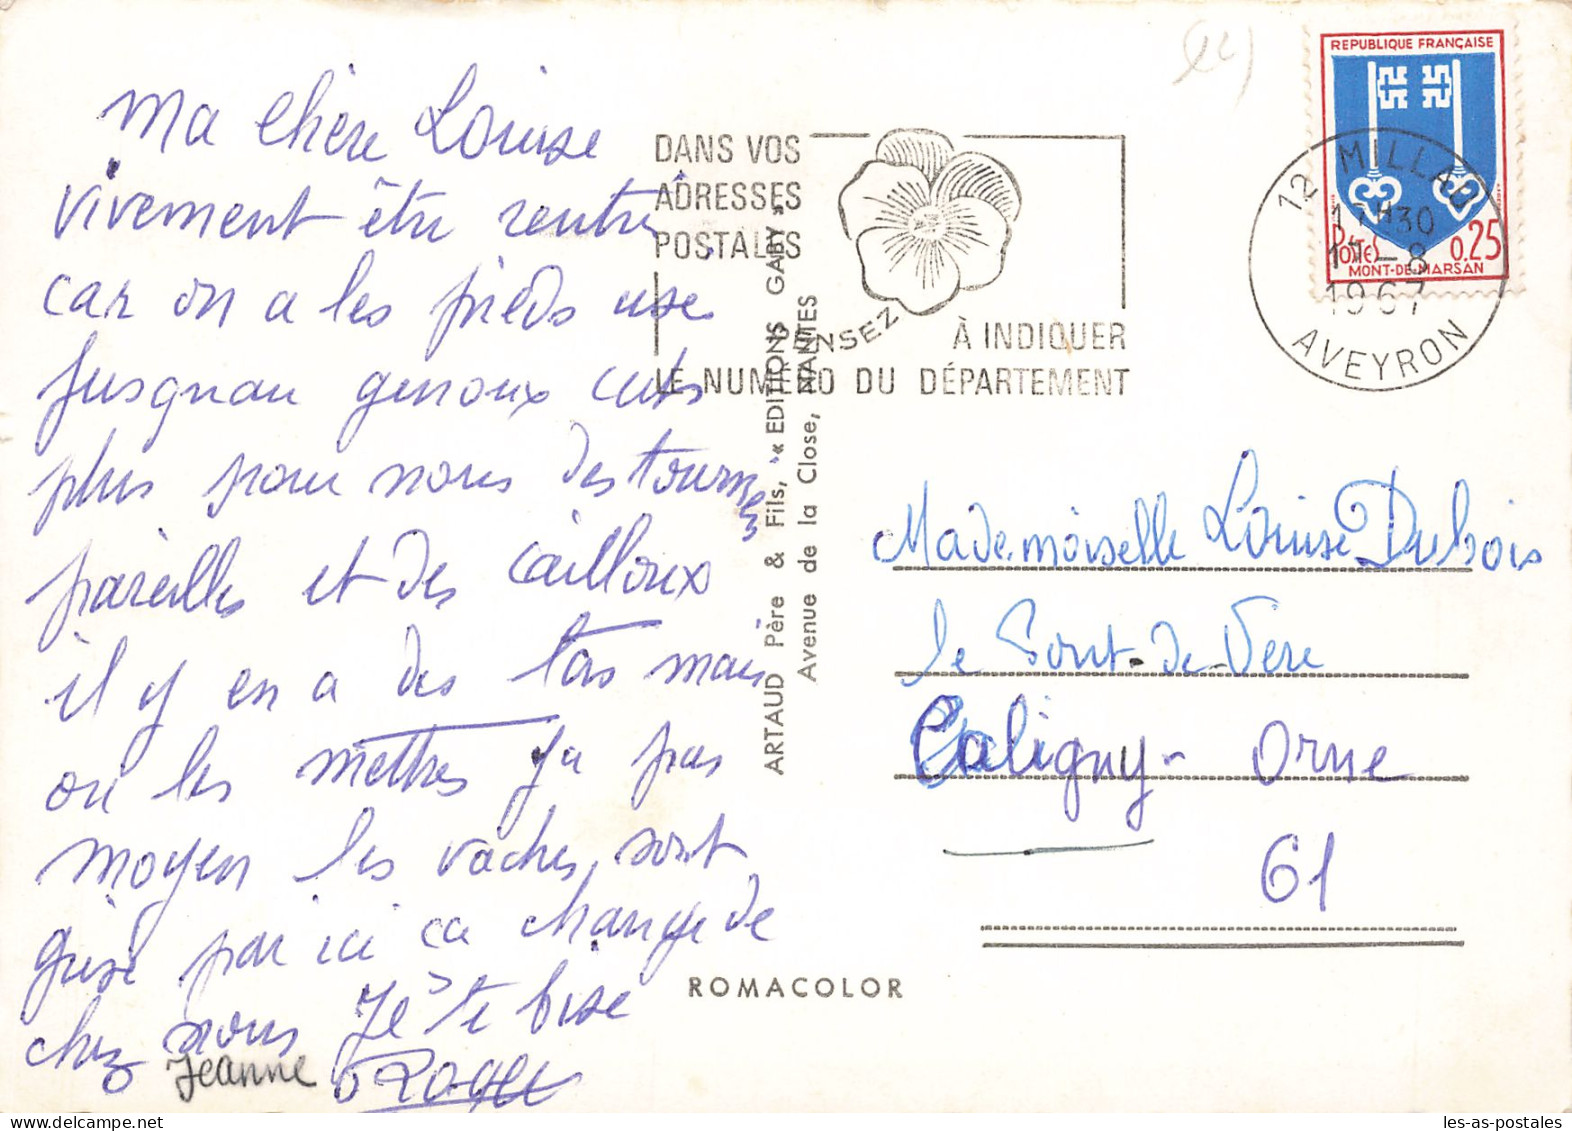 Ma chère Louise
vivement être rentré
car on a les pieds use
jusquau genoux cest
plus pour nous des tournés
pareilles et des cailloux
il y en a des tas mais
ou les mettres ja pas
moyen les vaches sont
grise par ici ca change de
chez nous Je te bise
Jeanne Roger
DANS VOS
ADRESSES
POSTALES
PENSEZ
À INDIQUER
LE NUMÉRO DU DÉPARTEMENT
ARTAUD Père & Fils, « EDITIONS GABY »
Avenue de la Close, NANTES
REPUBLIQUE FRANÇAISE
POSTES 0.25
MONT-DE-MARSAN
12 MILLAU
17H30
17-8
1967
AVEYRON
Mademoiselle Louise Dubois
le Pont-de-Vère
Caligny - Orne
61
ROMACOLOR
les-as-postales